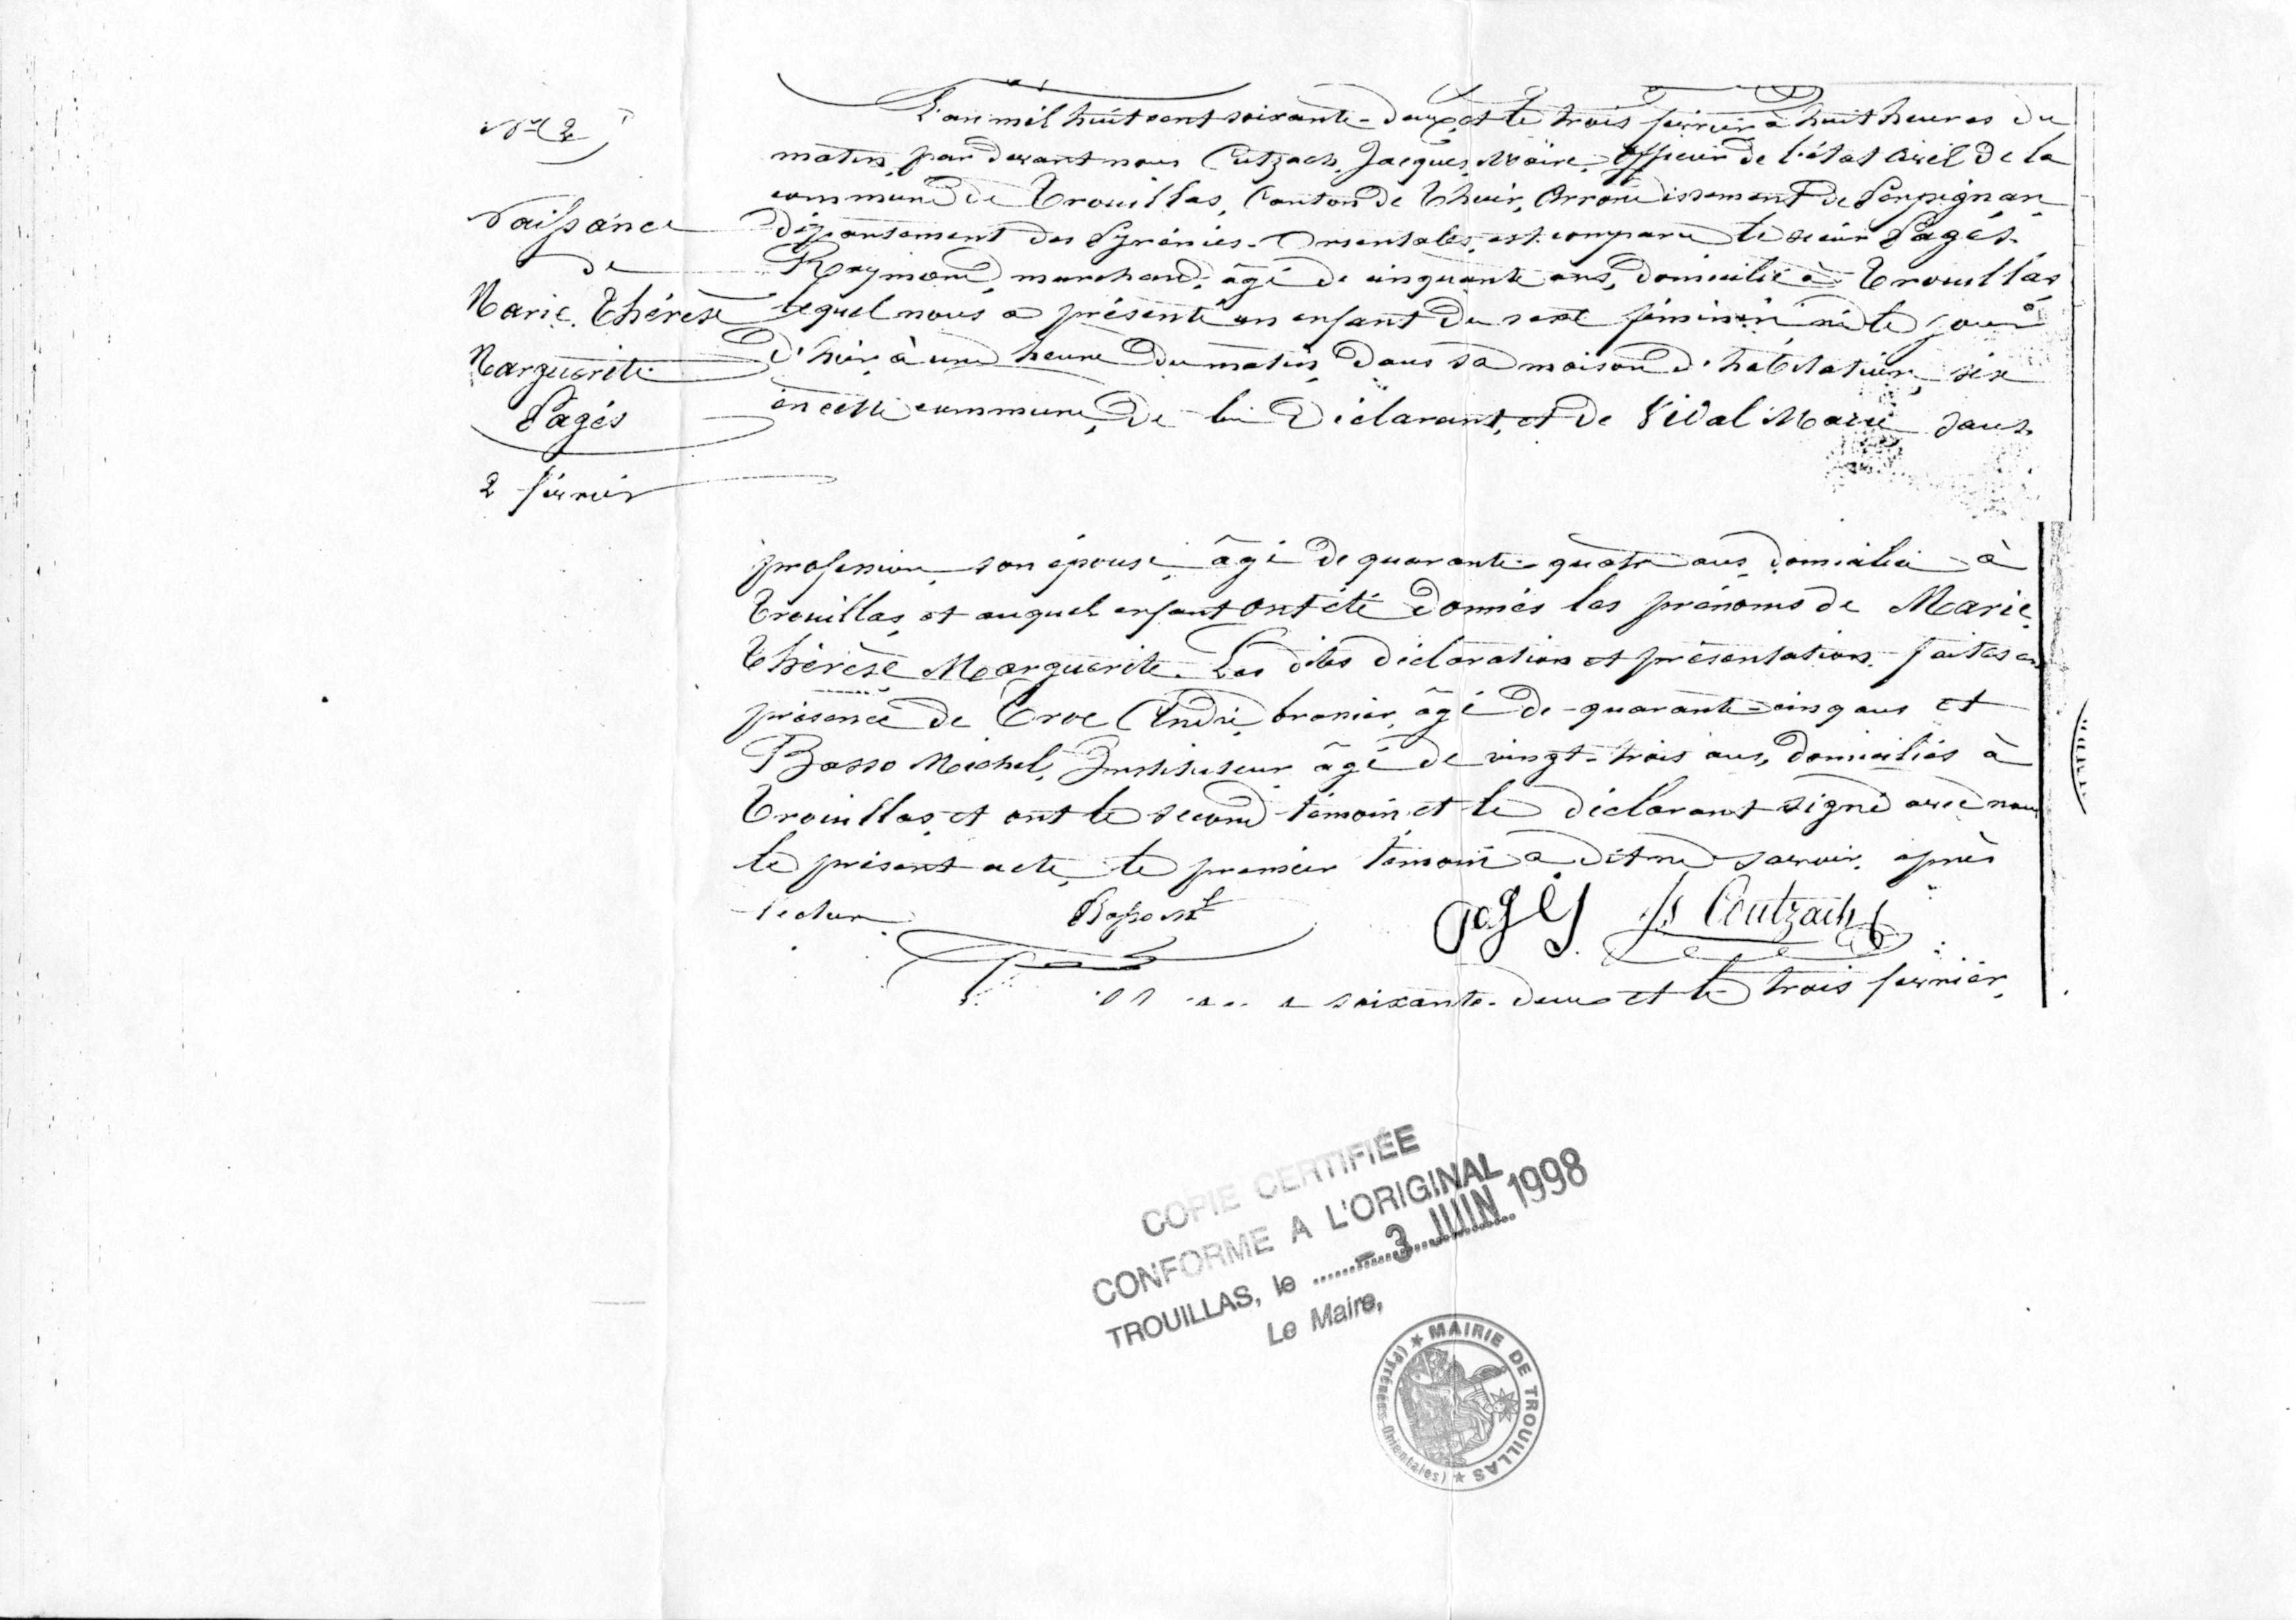 No 2
Naissance
de
Marie, Thérèse
Marguerite
Pagès
2 février
L'an mil huit cent soixante-deux et le trois février à huit heures du
matin, par devant nous Cutzach, Jacques, Maire, Officier de l'état civil de la
commune de Trouillas, Canton de Thuir, Arrondissement de Perpignan
département des Pyrénées-Orientales, est comparu le sieur Pagès
Raymond, marchand, âgé de cinquante ans, domicilié à Trouillas
lequel nous a présenté un enfant du sexe féminin, né le jour
d'hier à une heure du matin dans sa maison d'habitation, sise
en cette commune, de lui Déclarant, et de Vidal Marie sans
profession, son épouse, âgé de quarante-quatre ans, domicilié à
Trouillas, et auquel enfant ont été donnés les prénoms de Marie,
Thérèse Marguerite. Les dites déclaration et présentation faites en
présence de Croc André, brassier, âgé de quarante-cinq ans et
Basso Michel, Instituteur âgé de vingt-trois ans, domiciliés à
Trouillas, et ont le second témoin et le déclarant signé avec nous
le présent acte, le premier témoin a dit ne savoir, après
lecture.
Basso Ml pagès Js Coutzach
soixante-deux et le trois février,
COPIE CERTIFIÉE
CONFORME A L'ORIGINAL
TROUILLAS, le - 3 JUIN 1998
Le Maire,
MAIRIE DE TROUILLAS
(Pyrénées-Orientales)